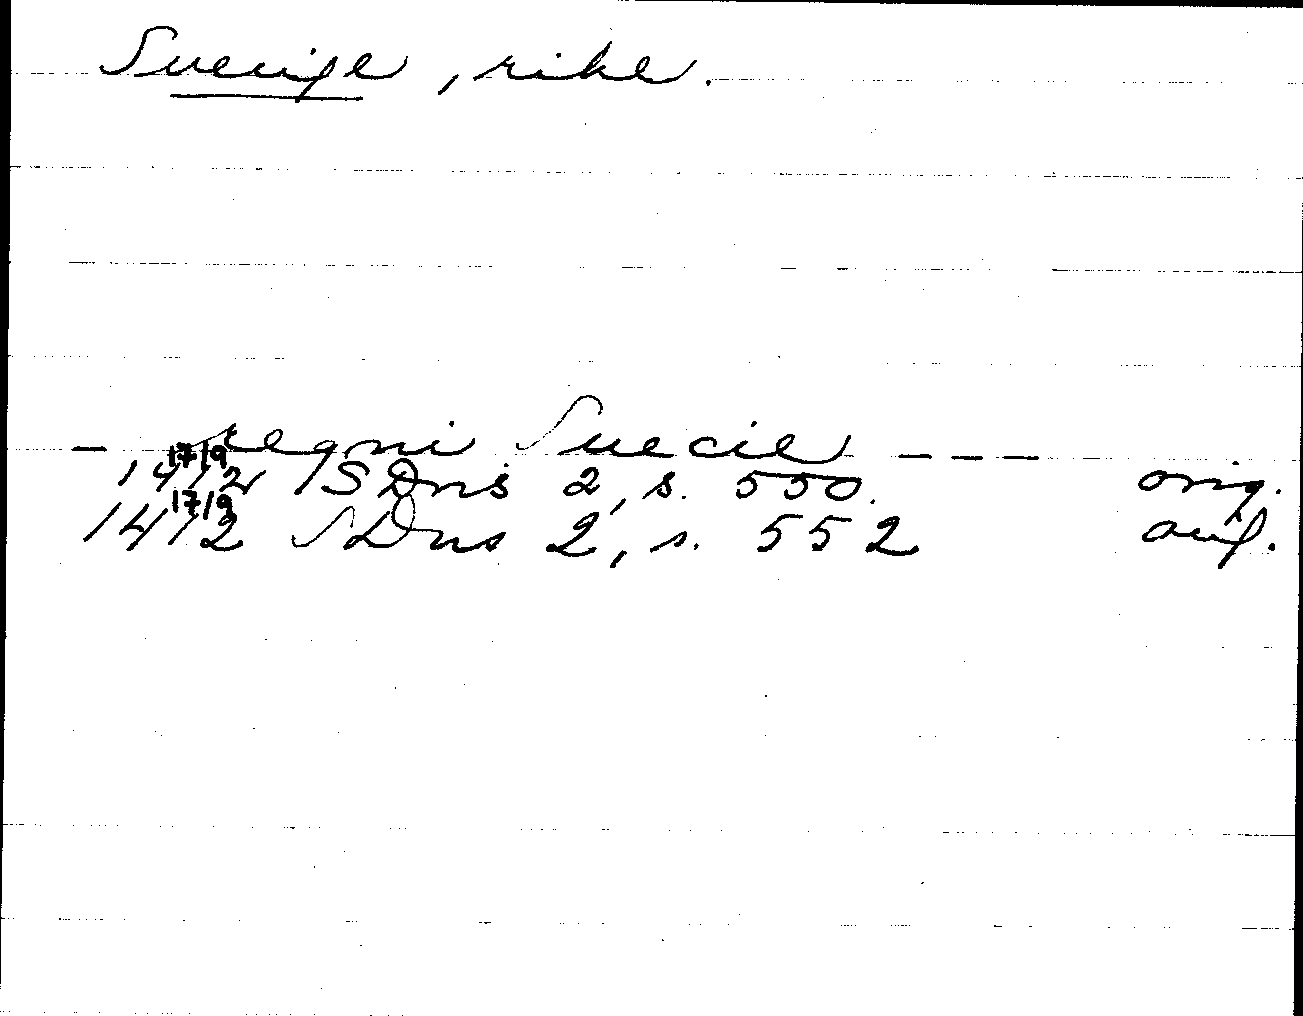 Sverige, rike.
- regni Suecie ---
1412 17/9 SDns 2, s. 550. orig.
1412 17/9 SDns 2, s. 552 orig.